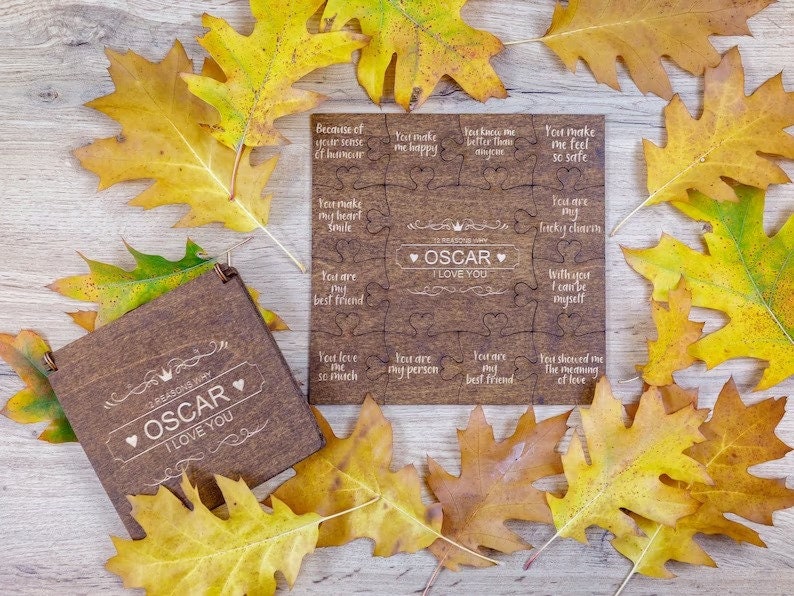 Because of
your sense
of humour
You make
me happy
You know me
better than
anyone
You make
me feel
so safe
You make
my heart
smile
You are
my
lucky charm
12 REASONS WHY
OSCAR
I LOVE YOU
You are
my
best friend
With you
I can be
myself
You love
me
so much
You are
my person
You are
my
best friend
You showed me
the meaning
of love
12 REASONS WHY
OSCAR
I LOVE YOU